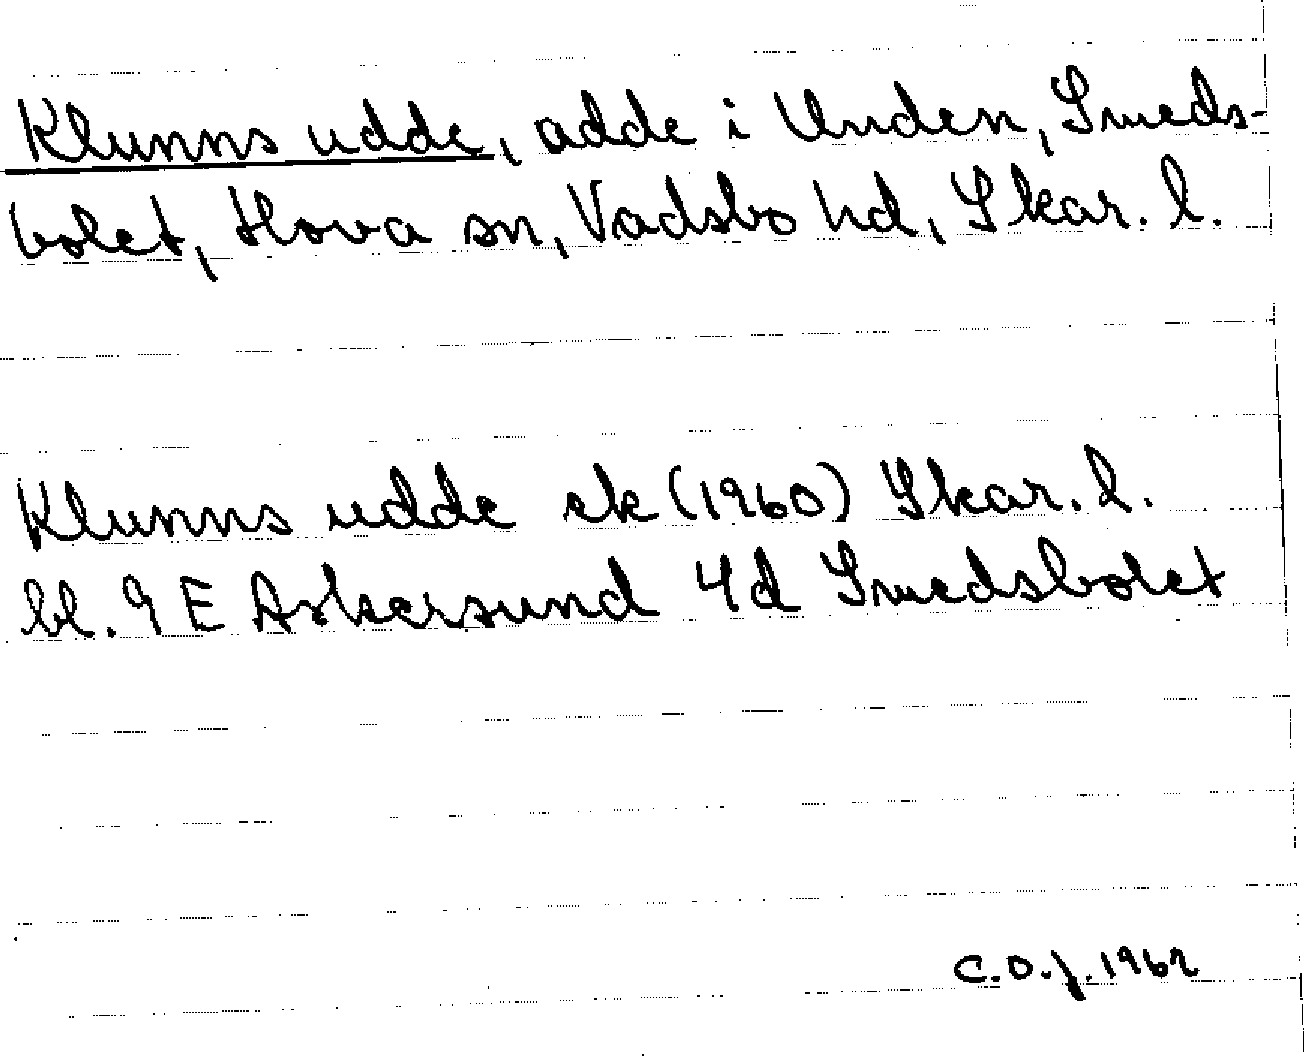 Klunns udde, udde i Unden, Smeds-
bolet, Hova sn, Vadsbo hd, Skar. l.
Klunns udde ek (1960) Skar. l.
bl. 9 E Askersund 4d Smedsbolet
C.O.J. 1962